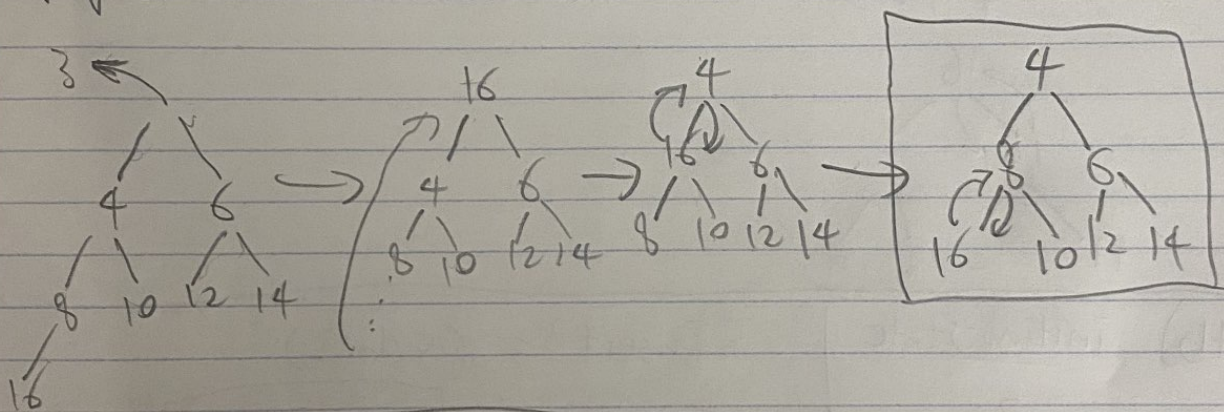 3
4 6
8 10 12 14
16
16
4 6
8 10 12 14
4
16 6
8 10 12 14
4
8 6
16 10 12 14